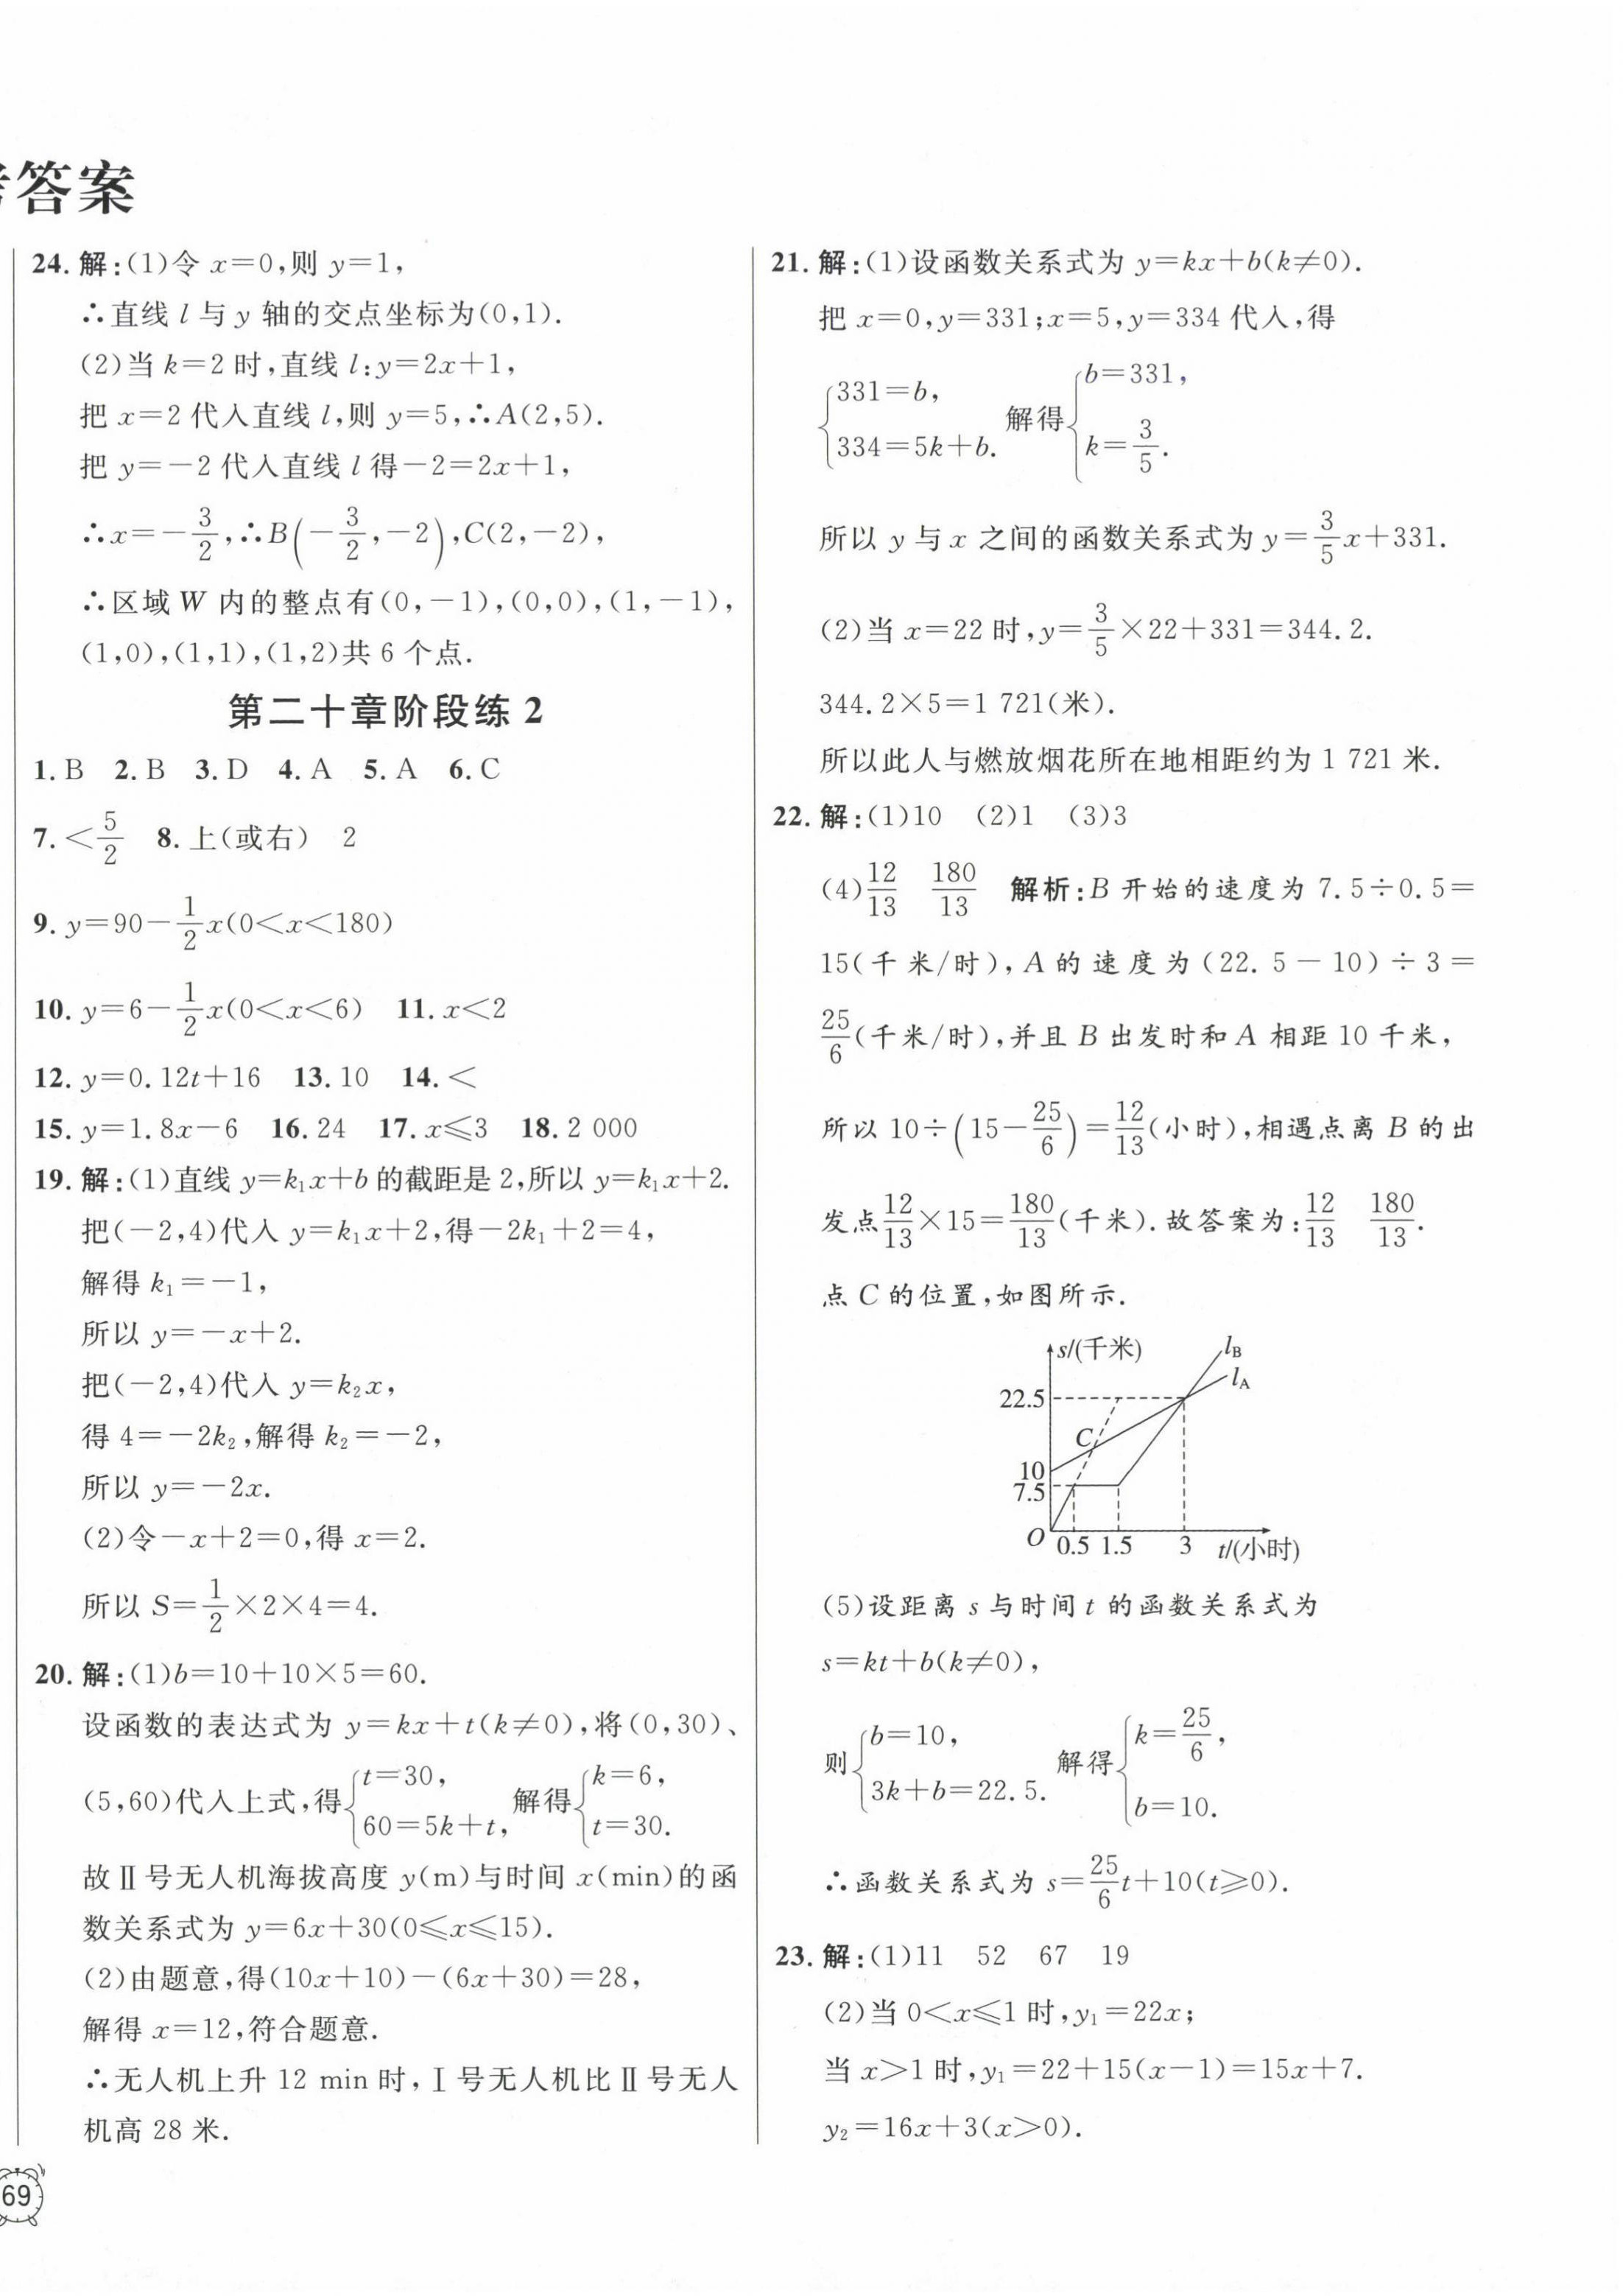 答案
24. 解:(1)令 x=0,则 y=1,
∴直线 l 与 y 轴的交点坐标为(0,1).
(2)当 k=2 时,直线 l:y=2x+1,
把 x=2 代入直线 l,则 y=5,∴A(2,5).
把 y=-2 代入直线 l 得-2=2x+1,
∴x=-3/2,∴B(-3/2,-2),C(2,-2),
∴区域 W 内的整点有(0,-1),(0,0),(1,-1),
(1,0),(1,1),(1,2)共 6 个点.
第二十章阶段练 2
1. B 2. B 3. D 4. A 5. A 6. C
7. <5/2 8. 上(或右) 2
9. y=90-1/2x(0<x<180)
10. y=6-1/2x(0<x<6) 11. x<2
12. y=0.12t+16 13. 10 14. <
15. y=1.8x-6 16. 24 17. x≤3 18. 2 000
19. 解:(1)直线 y=k₁x+b 的截距是 2,所以 y=k₁x+2.
把(-2,4)代入 y=k₁x+2,得-2k₁+2=4,
解得 k₁=-1,
所以 y=-x+2.
把(-2,4)代入 y=k₂x,
得 4=-2k₂,解得 k₂=-2,
所以 y=-2x.
(2)令-x+2=0,得 x=2.
所以 S=1/2×2×4=4.
20. 解:(1)b=10+10×5=60.
设函数的表达式为 y=kx+t(k≠0),将(0,30)、
(5,60)代入上式,得{t=30, 60=5k+t, 解得{k=6, t=30.
故Ⅱ号无人机海拔高度 y(m)与时间 x(min)的函
数关系式为 y=6x+30(0≤x≤15).
(2)由题意,得(10x+10)-(6x+30)=28,
解得 x=12,符合题意.
∴无人机上升 12 min 时,Ⅰ号无人机比Ⅱ号无人
机高 28 米.
69
21. 解:(1)设函数关系式为 y=kx+b(k≠0).
把 x=0,y=331;x=5,y=334 代入,得
{331=b, 334=5k+b. 解得{b=331, k=3/5.
所以 y 与 x 之间的函数关系式为 y=3/5x+331.
(2)当 x=22 时,y=3/5×22+331=344.2.
344.2×5=1 721(米).
所以此人与燃放烟花所在地相距约为 1 721 米.
22. 解:(1)10 (2)1 (3)3
(4)12/13 180/13 解析:B 开始的速度为 7.5÷0.5=
15(千米/时),A 的速度为(22.5-10)÷3=
25/6(千米/时),并且 B 出发时和 A 相距 10 千米,
所以 10÷(15-25/6)=12/13(小时),相遇点离 B 的出
发点12/13×15=180/13(千米).故答案为:12/13 180/13.
点 C 的位置,如图所示.
s/(千米) l_B
l_A
22.5
C
10
7.5
O 0.5 1.5 3 t/(小时)
(5)设距离 s 与时间 t 的函数关系式为
s=kt+b(k≠0),
则{b=10, 3k+b=22.5. 解得{k=25/6, b=10.
∴函数关系式为 s=25/6t+10(t≥0).
23. 解:(1)11 52 67 19
(2)当 0<x≤1 时,y₁=22x;
当 x>1 时,y₁=22+15(x-1)=15x+7.
y₂=16x+3(x>0).